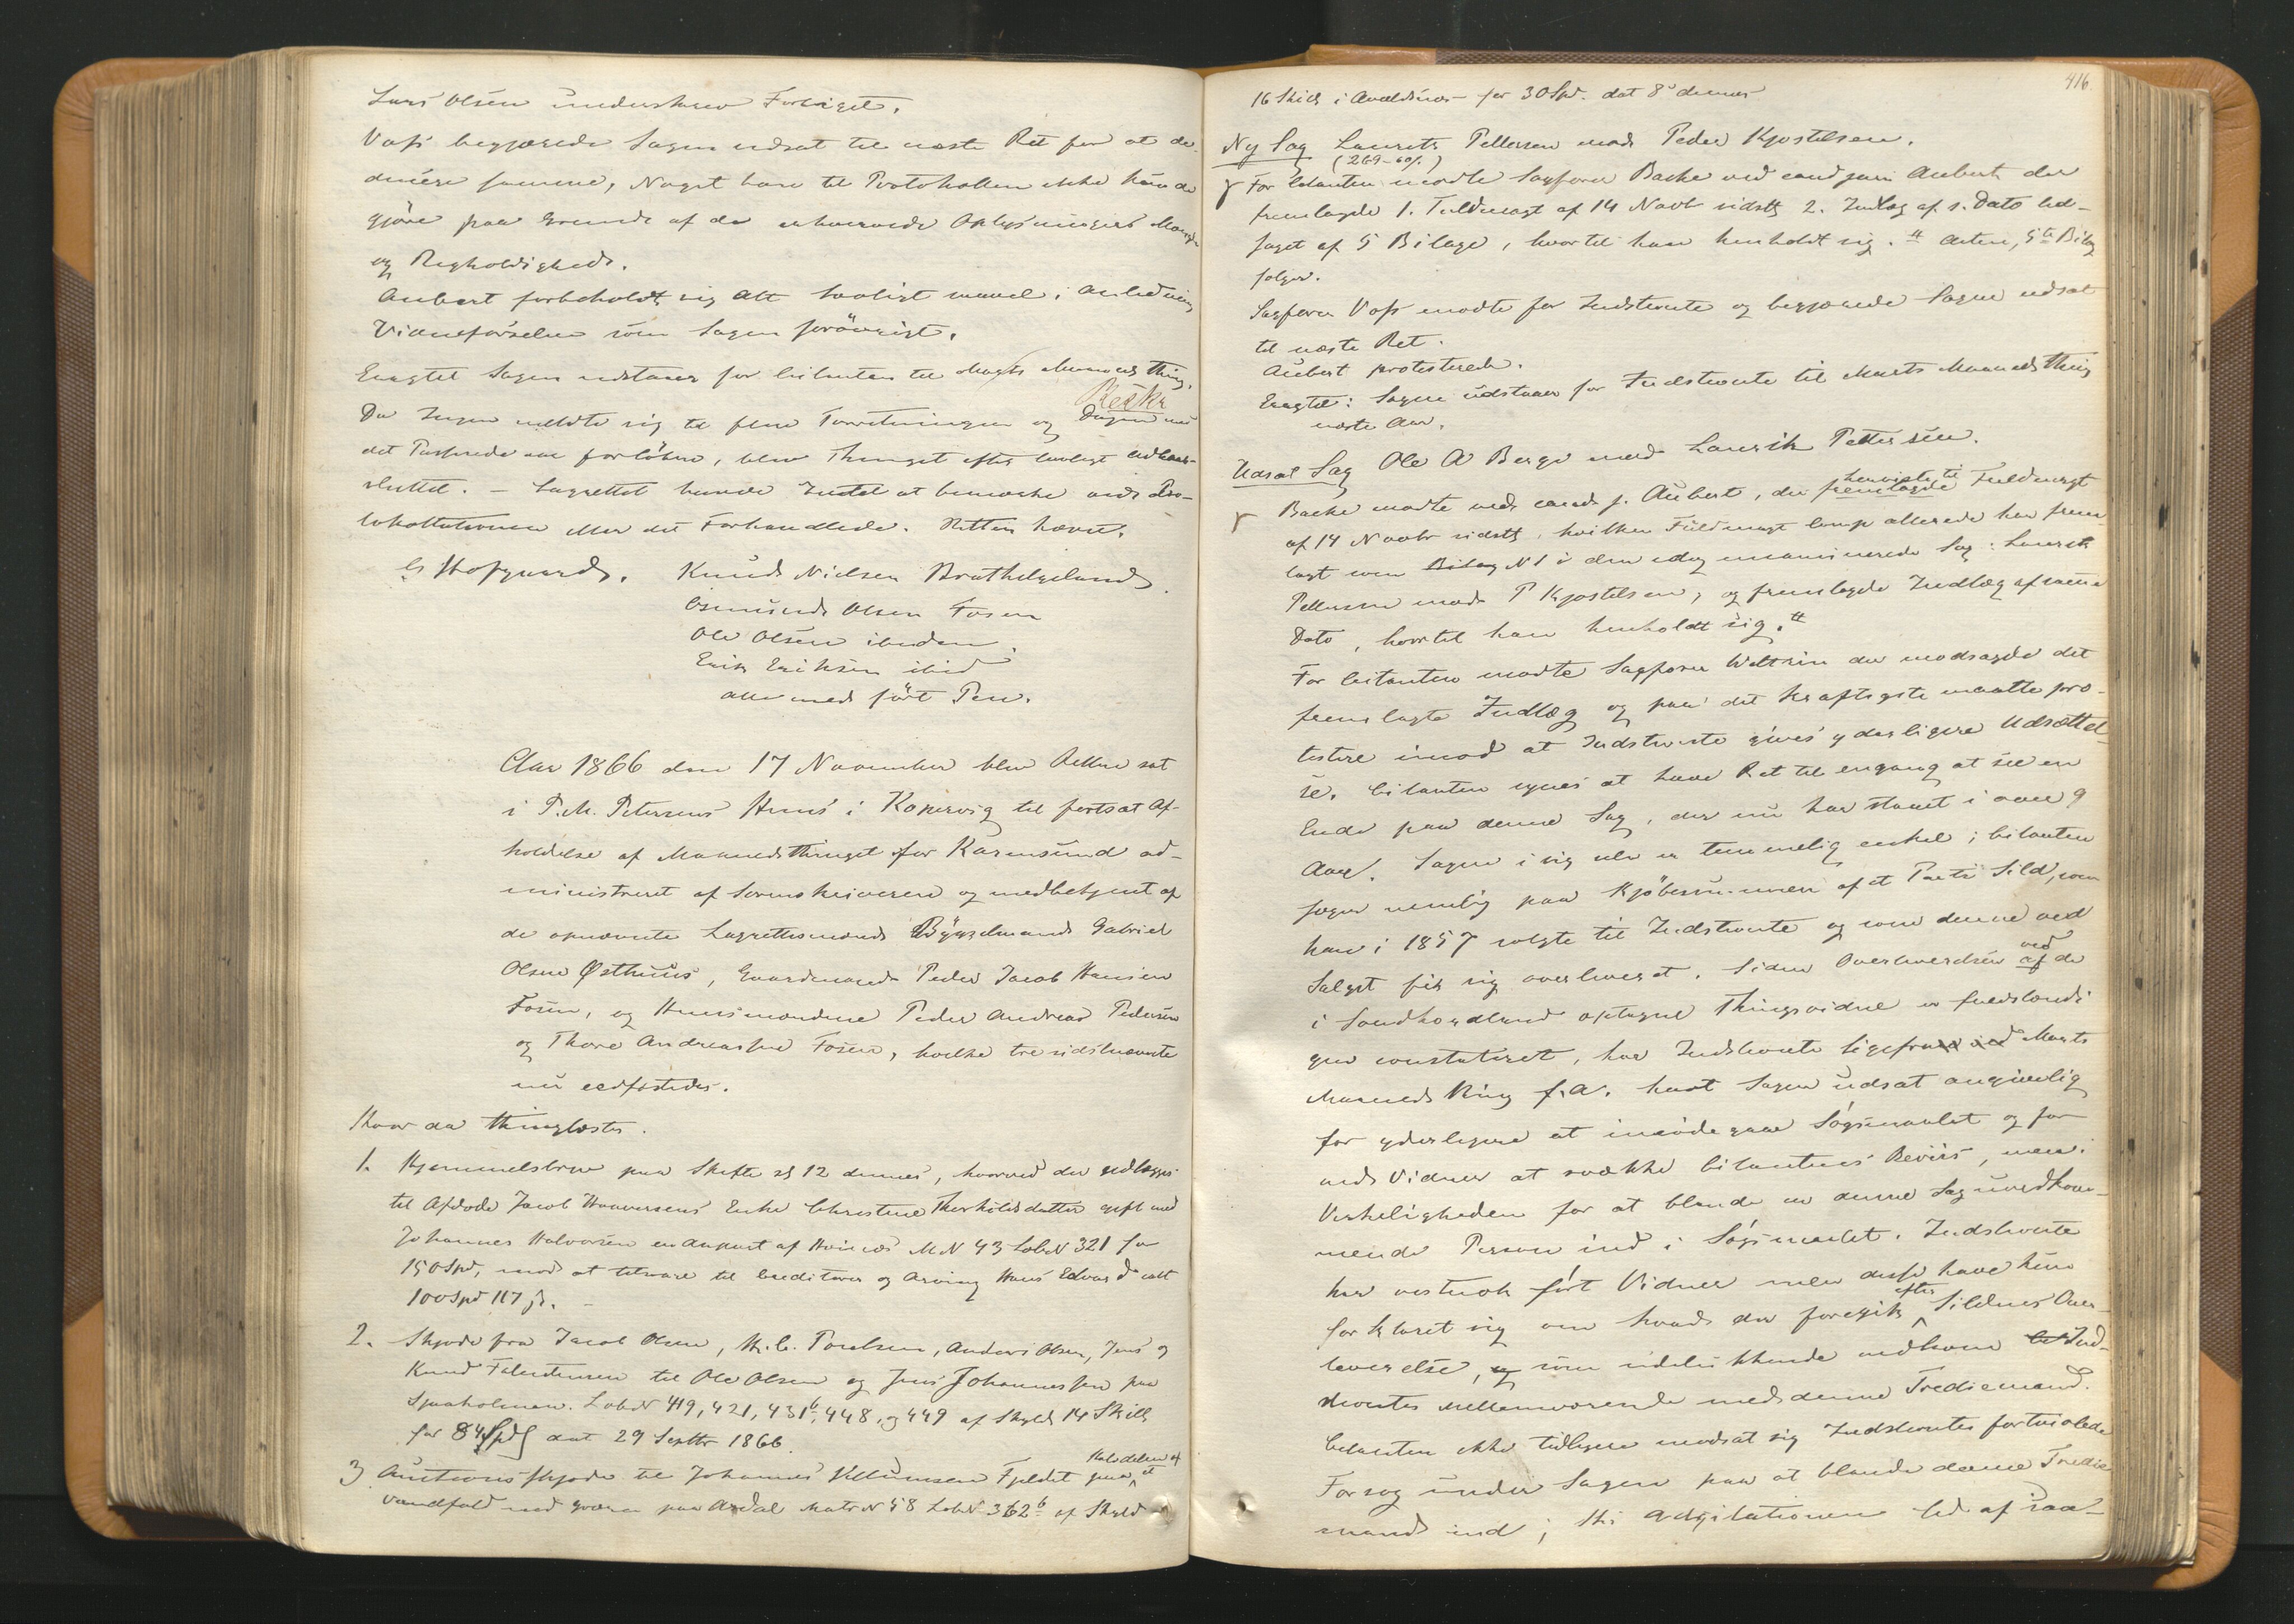 Lars Olsen underskrev Forliget.
Voss begjærede Sagen udsat til næste Ret for at de-
ducere samme, Noget han til Protokollen ikke kunde
gjöre paa Grund af de erhvervede Oplysningers Mangde
og Righoldighed.
Aubert forbeholdt sig Alt lovligt med i Anledning
Vidneförselen som Sagen forövrigt.
Eragtet Sagen udstaaer for Citanten til Marts Maaneds thing.
Da Ingen meldte sig til flere Forretninger og Dagen nu
det Passerede var forlöben, blev Thinget efter lovligt Udraab
sluttet. – Lagrettet havde Intet at bemærke ved Pro-
tokollationen eller det Forhandlede. Retten hævet.
Hofgaard. Knud Nielsen Brathelgeland
Osmund Olsen Fosen
Ole Olsen ibidem
Erik Eriksen ibid
alle med fört Pen.
Aar 1866 den 17 November blev Retten sat
i P. M. Petersens Huus i Kopervig til fortsat Af-
holdelse af Maanedsthinget for Karmsund ad-
ministreret af Sorenskriveren og medbetjent af
de opnævnte Lagrettesmænd Bygselmand Gabriel
Olsen Østhuus, Gaardmand Peder Jacob Hansen
Fosen, og Huusmændene Peder Andreas Pedersen
og Thore Andreassen Fosen, hvilke tre sidstnævnte
nu eedfæstedes.
Hvor da thinglæstes.
1. Hjemmelsbrev paa Skifte af 12 dennes, hvorved der udlægges
til Afdøde Jacob Haaversens Enke Christine Thorkildsdatter gift med
Johannes Halvorsen en Anpart af MN 43 LobN 321 for
150 Spd, mod at tilsvare til Creditorer og Arving Hans Edvard ialt
100 Spd 117 ß. –
2. Skjøde fra Jacob Olsen, H. C. Poulsen, Anders Olsen, Jens og
Knud Falentinsen til Ole Olsen og Jens Johannessen paa
LobN 419, 421, 431 b, 448, og 449 af Skyld 14 Skill
for 84 Spd dat 29 Septbr 1866.
3. Auctionsskjøde til Johannes Fjeldet paa Halvdelen af et
Vandfald med qværn paa Matr N 58 LobN 362 b af Skyld
416
16 Skill i Avaldsnes for 30 Spd. dat 8de dennes
Ny Sag Laurits Pettersen mod Peder Kjostelsen.
(269–60/.)
For Citanten mødte Sagfører Backe ved cand juris Aubert der
fremlagde 1. Fuldmagt af 14 Novbr sidstl 2. Indlæg af s. Dato led-
saget af 5 Bilage, hvortil han henholdt sig. # Acten, 5te Bilag
følger.
Sagfører Voss mødte for Indstevnte og begjærede Sagen udsat
til næste Ret.
Aubert protesterede.
Eragtet: Sagen udstaaer for Indstevnte til Marts Maaneds thing
næste Aar.
Udsat Sag Ole A Berge mod Laurits Pettersen.
Backe mødte ved cand j. Aubert, der fremlagde henviste til Fuldmagt
af 14 Novbr sidstl, hvilken Fuldmagt allerede han frem-
lagt som Bilag N 1 i den idag Sag: Laurits
Pettersen mod P Kjostelsen, og fremlagde Indlæg af samme
Dato, hvortil han henholdt sig. #
For Citanten mødte Sagfører der modsagde det
fremlagte Indlæg og paa det kraftigste maatte pro-
testere imod at Indstevnte gives yderligere Udsættel-
se. Citanten synes at have Ret til engang at see en
Ende paa denne Sag, der nu har staaet i over 9
Aar. Sagen i sig selv er temmelig enkel; Citanten
søger nemlig paa Kjöbesummen af et Parti Sild, som
han i 1857 solgte til Indstevnte og som denne ved
Salget fik sig overleveret. Siden Overleverelsen af ved de
i Søndhordland optagne Thingsvidne er fuldstændi-
gen constateret, har Indstevnte ligefrem ved Marts
Maaneds thing f. A. havt Sagen udsat angivelig
for yderligere at imødegaae Søgsmaalet og for
ved Vidner at svække Citantens Beviis, men i
Virkeligheden for at blande en denne Sag uvedkom-
mende Person ind i Søgsmaalet. Indstevnte
har vistnok fört Vidner men disse have kun
forklaret sig om hvad der foregik efter Sildens Over-
leverelse, og som udelukkende vedkom Ind-
stevntes Mellemværende med denne Trediemand.
Citanten ikke tidligere modsat sig Indstevntes fortvivlede
Forsøg under Sagen paa at blande denne Tredie-
mand ind; thi Adcitationen led af saa-